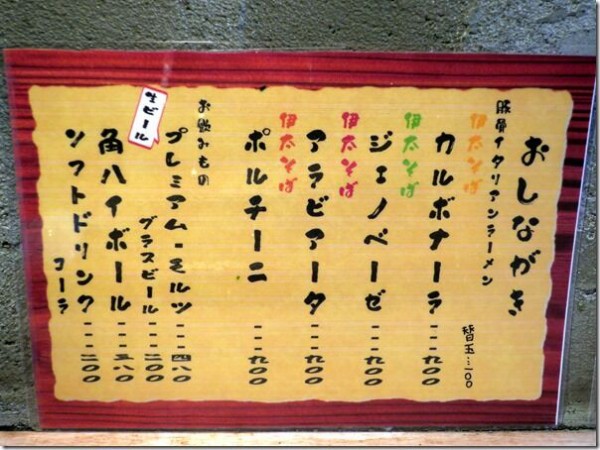 おしながき
豚骨イタリアンラーメン
替玉…一〇〇
伊太そば
カルボナーラ---九〇〇
伊太そば
ジェノベーゼ---九〇〇
伊太そば
アラビアータ---九〇〇
伊太そば
ポルチーニ---九〇〇
お飲みもの
生ビール
プレミアム・モルツ---四八〇
グラスビール---二〇〇
角ハイボール---三八〇
ソフトドリンク---二〇〇
コーラ